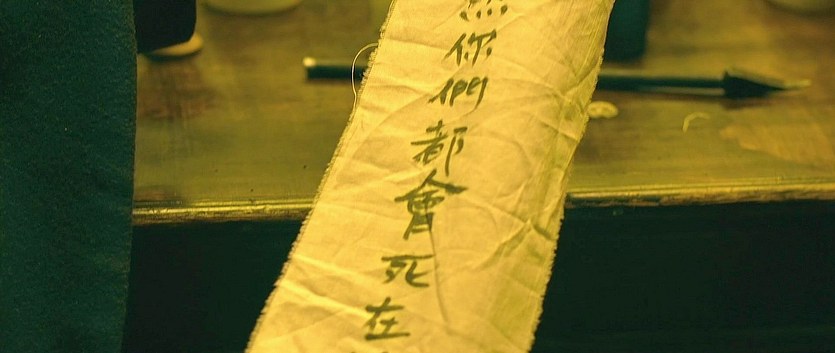 然你們都會死在